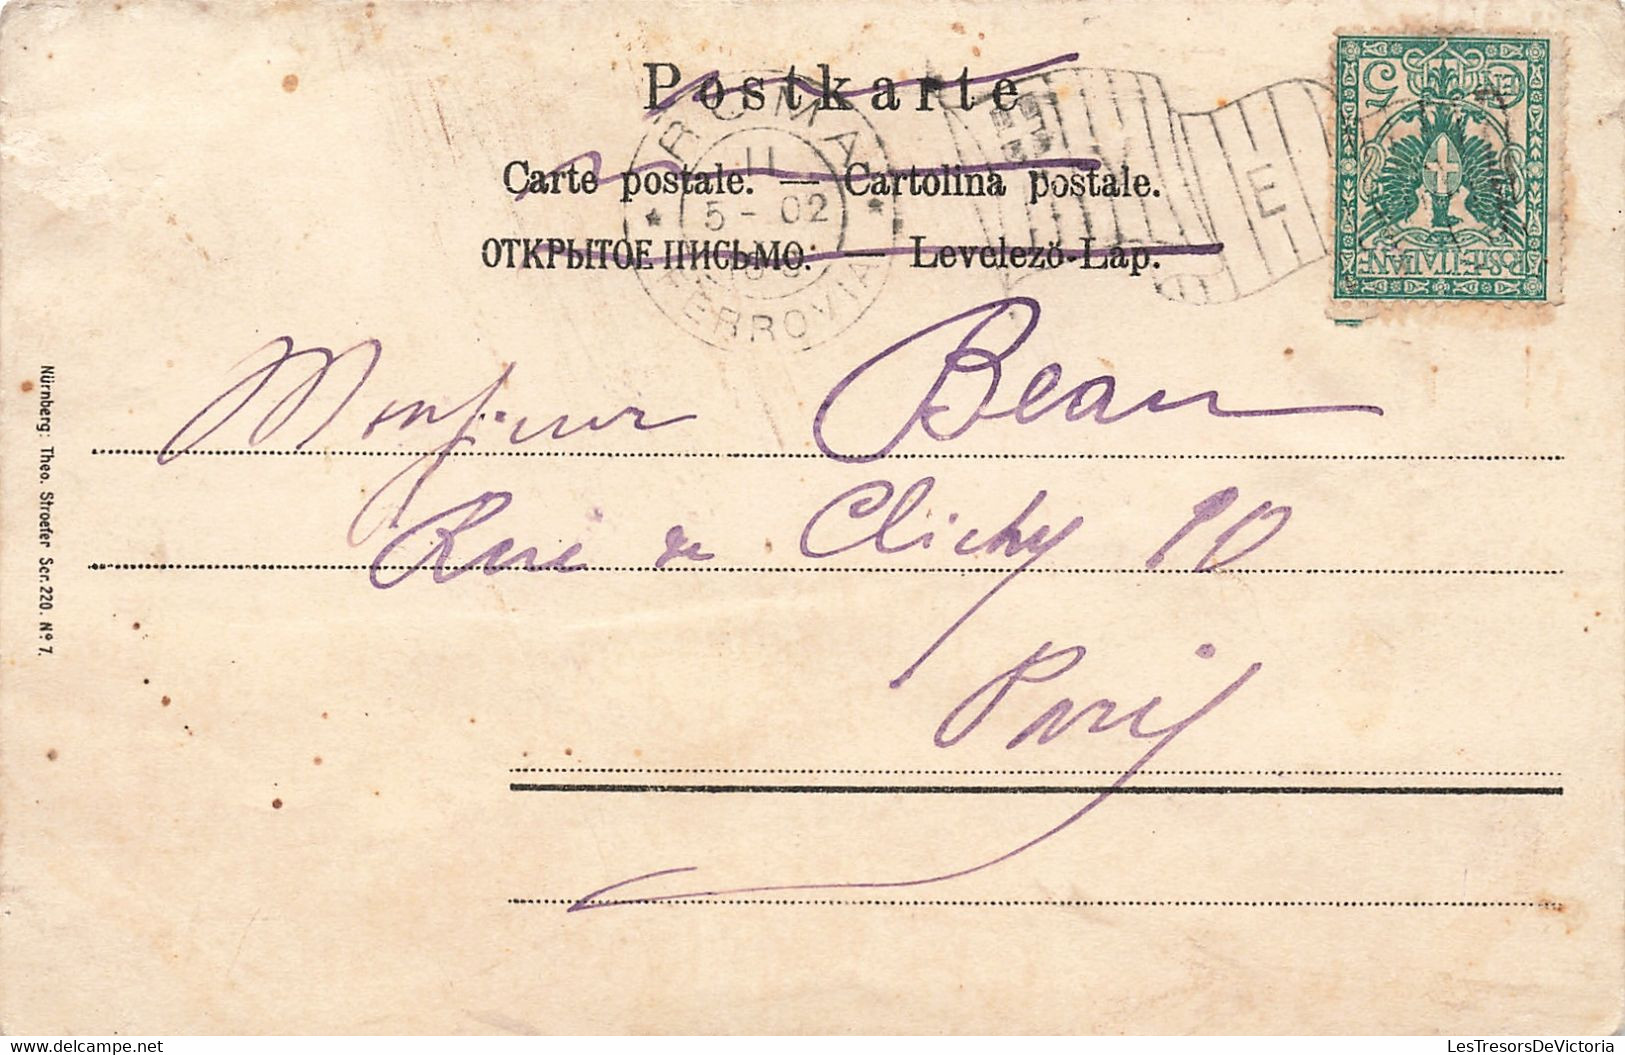 Postkarte
Carte postale. — Cartolina postale.
ОТКРЫТОЕ ПИСЬМО: — Levelező-Lap.
ROMA
11
5 - 02
FERROVIA
E
5
CEN
POSTE ITALIANE
Monsieur Beau
Rue de Clichy 90
Paris
Nürnberg: Theo. Stroefer Scr. 220. Nº 7.
LesTresorsDeVictoria
delcampe.net